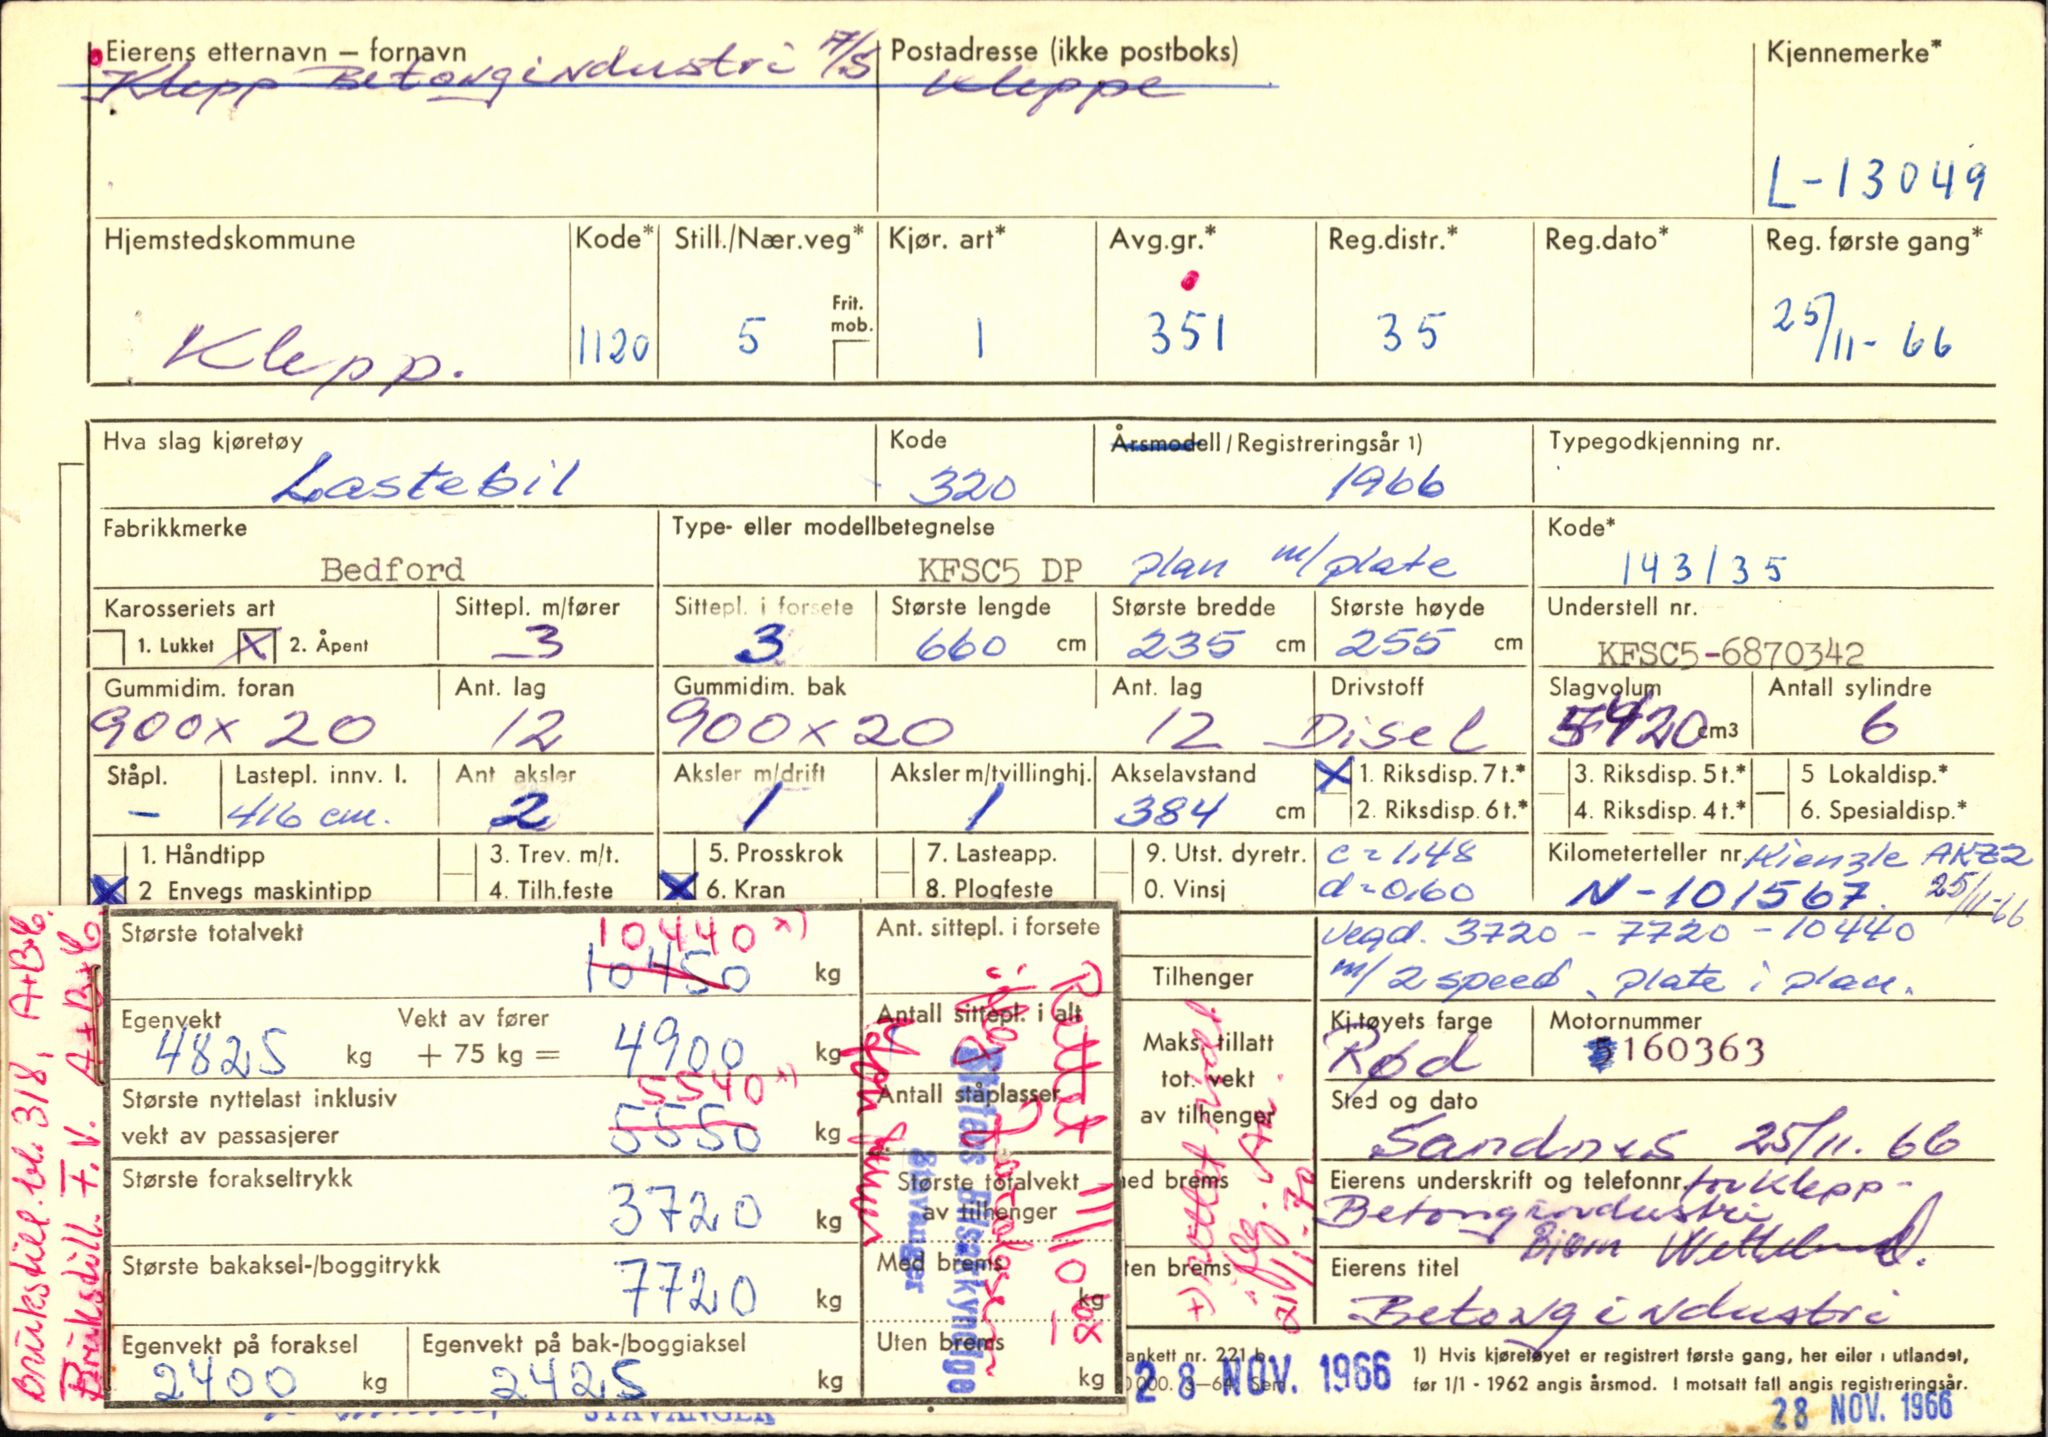 Eierens etternavn – fornavn
Klepp Betongindustri A/S
Postadresse (ikke postboks)
Kleppe
Kjennemerke*
L-13049
Hjemstedskommune
Klepp.
Kode*
1120
Still./Nær.veg*
5
Frit. mob.
Kjør. art*
1
Avg.gr.*
351
Reg.distr.*
35
Reg.dato*
Reg. første gang*
25/11-66
Hva slag kjøretøy
Lastebil
Kode
320
Årsmodell/Registreringsår 1)
1966
Typegodkjenning nr.
Fabrikkmerke
Bedford
Type- eller modellbetegnelse
KFSC5 DP plan m/plate
Kode*
143135
Karosseriets art
1. Lukket X 2. Åpent
Sittepl. m/fører
3
Sittepl. i forsete
3
Største lengde
660 cm
Største bredde
235 cm
Største høyde
255 cm
Understell nr.
KFSC5-6870342
Gummidim. foran
900x20
Ant. lag
12
Gummidim. bak
900x20
Ant. lag
12
Drivstoff
Disel
Slagvolum
5420 cm3
Antall sylindre
6
Ståpl.
–
Lastepl. innv. l.
416 cm.
Ant aksler
2
Aksler m/drift
1
Aksler m/tvillinghj.
1
Akselavstand
384 cm
X 1. Riksdisp. 7 t.*
2. Riksdisp. 6 t.*
3. Riksdisp. 5 t.*
4. Riksdisp. 4 t.*
5 Lokaldisp.*
6. Spesialdisp.*
1. Håndtipp
X 2 Envegs maskintipp
3. Trev. m/t.
4. Tilh.feste
5. Prosskrok
X 6. Kran
7. Lasteapp.
8. Plogfeste
9. Utst. dyretr.
0. Vinsj
c = 1,48
d = 0,60
Kilometerteller nr. Kienzle AKZ2
N-101567. 25/11-66
Største totalvekt
10440 x)
10450 kg
Egenvekt
4825 kg
Vekt av fører
+ 75 kg = 4900 kg
Største nyttelast inklusiv
vekt av passasjerer
5540 x)
5550 kg
Største forakseltrykk
3720 kg
Største bakaksel-/boggitrykk
7720 kg
Egenvekt på foraksel
2400 kg
Egenvekt på bak-/boggiaksel
2425 kg
Ant. sittepl. i forsete
Antall sittepl. i alt
Antall ståplasser
Største totalvekt
av tilhenger
Med brems
kg
Uten brems
kg
Rettet 11/10-68
Statens Bilsakkyndige
Stavanger
Brukstill. bl. 318, A+B+C.
Brukstill. F.V. A+B+C.
Tilhenger
Maks. tillatt
tot. vekt
av tilhenger
ned brems
ten brems
vegd. 3720 – 7720 – 10440
m/ 2 speed, plate i plan.
Kj.tøyets farge
Rød
Motornummer
5160363
Sted og dato
Sandnes 25/11. 66
Eierens underskrift og telefonnr. for Klepp-
Betongindustri
Eierens titel
Betongindustri
ankett nr. 221 b
28 NOV. 1966
1) Hvis kjøretøyet er registrert første gang, her eller i utlandet,
før 1/1 - 1962 angis årsmod. I motsatt fall angis registreringsår.
28 NOV. 1966
STAVANGER